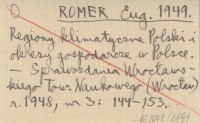 ROMER Eug. 1949.
Regiony klimatyczne Polski i
okresy gospodarcze w Polsce.
— Sprawozdania Wrocławs-
kiego Tow. Naukowego (Wrocław)
r. 1948, nr 3: 144-153.